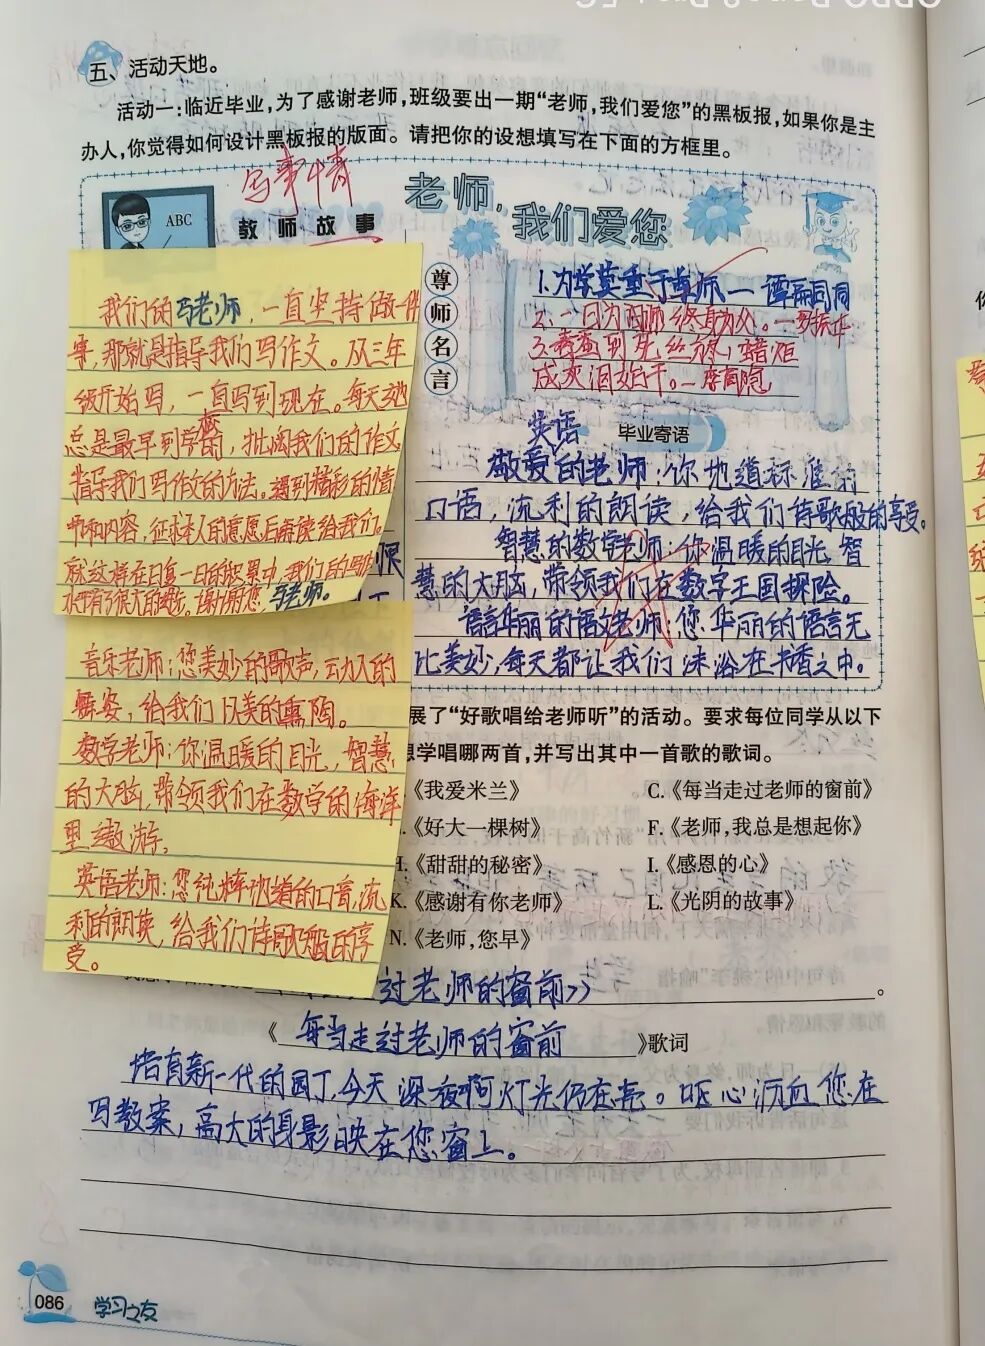 五、活动天地。
活动一:临近毕业,为了感谢老师,班级要出一期“老师,我们爱您”的黑板报,如果你是主
办人,你觉得如何设计黑板报的版面。请把你的设想填写在下面的方框里。
写事情
ABC
教师故事
老师,
我们爱您
我们的马老师,一直坚持做一件
事,那就是指导我们写作文。从三年
级开始写,一直写到现在。每天她
总是最早到学校,批阅我们的作文,
指导我们写作文的方法。遇到精彩的情
节和内容,征求本人的意愿后再读给我们。
就这样在日复一日的积累中,我们的写作
水平有了很大的进步。谢谢您,马老师。
尊师名言
1.为学莫重于尊师。—谭嗣同
2.一日为师终身为父。—罗振玉
3.春蚕到死丝方尽,蜡炬
成灰泪始干。—李商隐
毕业寄语
英语
敬爱的老师:你地道标准的
口语,流利的朗读,给我们诗歌般的享受。
智慧的数学老师:你温暖的目光,智
慧的大脑,带领我们在数字王国探险。
语言华丽的语文老师:您华丽的语言无
比美妙,每天都让我们沐浴在书香之中。
音乐老师:您美妙的歌声,动人的
舞姿,给我们以美的熏陶。
数学老师:你温暖的目光,智慧
的大脑,带领我们在数学的海洋
里遨游。
英语老师:您纯粹地道的口音,流
利的朗读,给我们诗歌般的享
受。
展了“好歌唱给老师听”的活动。要求每位同学从以下
想学唱哪两首,并写出其中一首歌的歌词。
《我爱米兰》
C.《每当走过老师的窗前》
《好大一棵树》
F.《老师,我总是想起你》
H.《甜甜的秘密》
I.《感恩的心》
K.《感谢有你老师》
L.《光阴的故事》
N.《老师,您早》
过老师的窗前》
。
《每当走过老师的窗前》歌词
培育新一代的园丁,今天深夜啊灯光仍在亮。呕心沥血您在
写教案,高大的身影映在您窗上。
086
学习之友